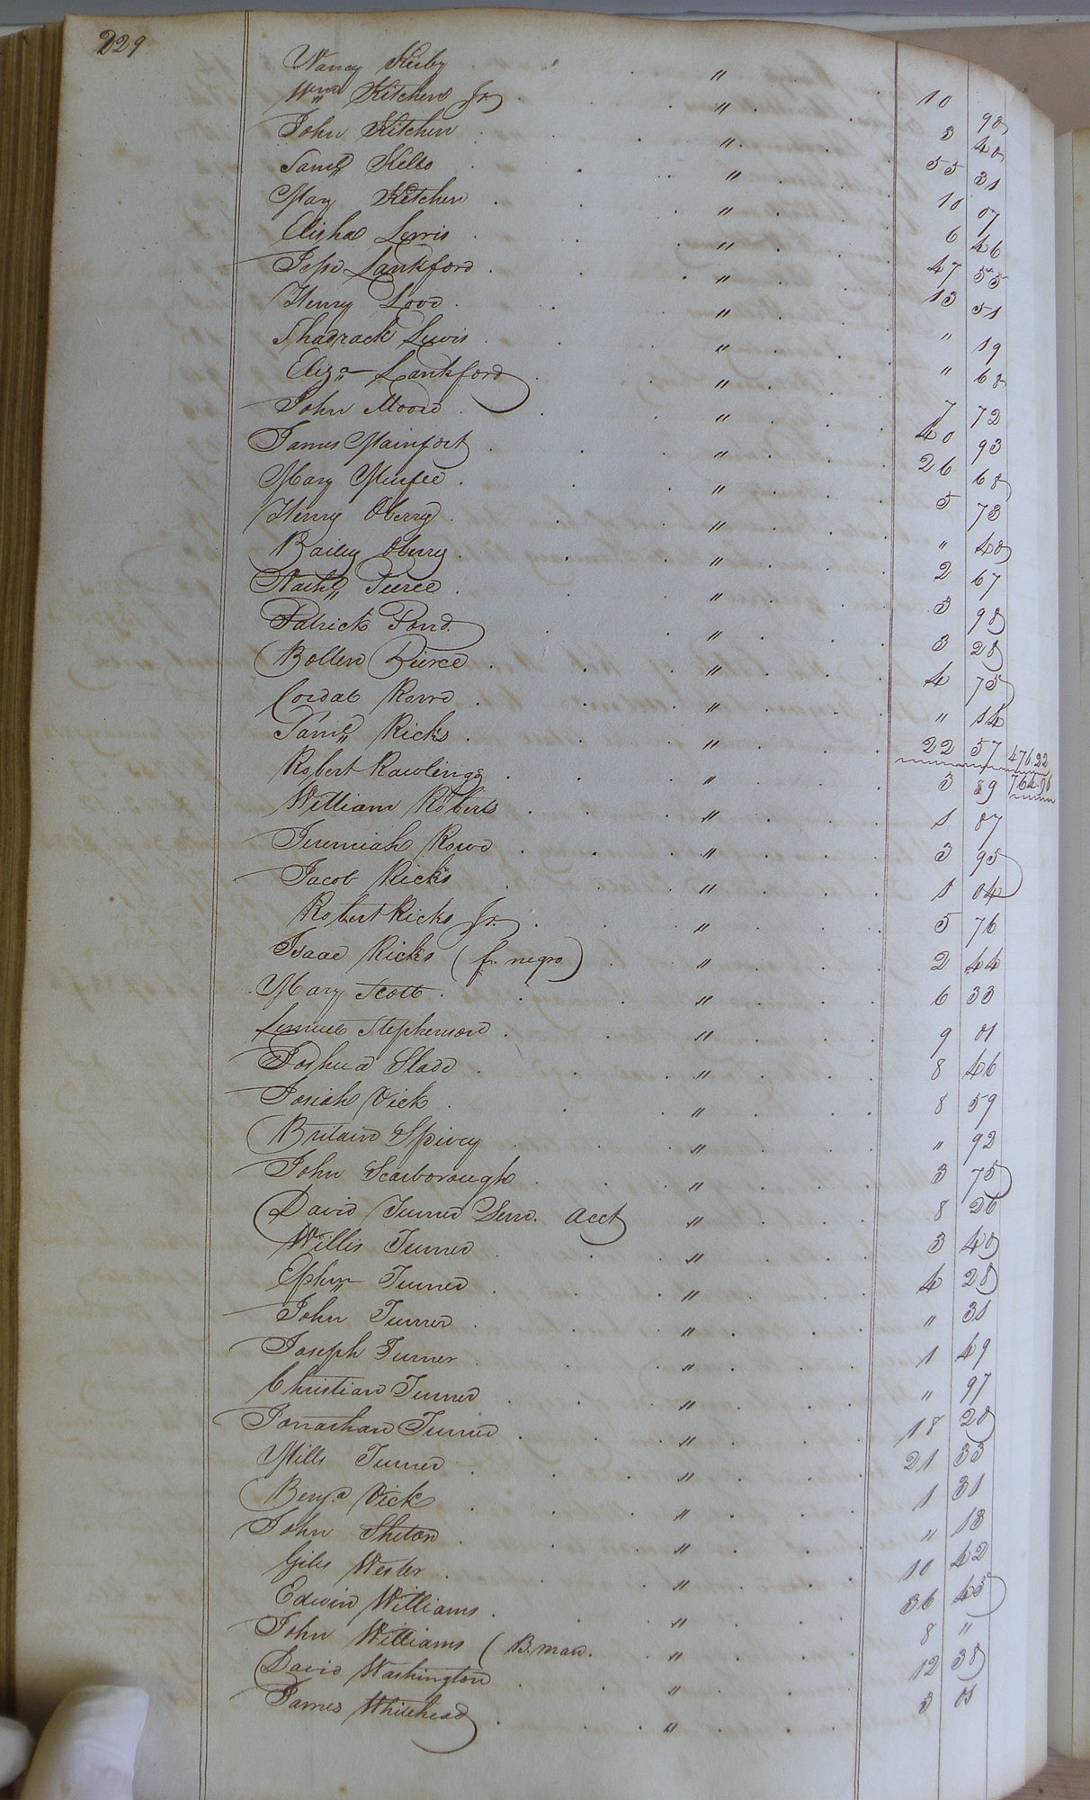 229
Nancy Kirby "
Wm Kitchen Jr " 10 98
John Kitchen " 3 40
Saml Kello " 55 31
Mary Kitchen " 10 07
Elisha Lewis " 6 46
Jesse Lankford " 47 55
Henry Love " 13 51
Shadrack Lewis " " 19
Eliza Lankford " " 68
John Moore " 7 72
James Mainfort " 40 93
Mary Murfee " 26 68
Henry Oberry " 5 73
Bailey Oberry " " 48
Nathl Pierce " 2 67
Patrick Pond " 3 98
Bollen Pierce " 3 28
Cordal " 4 75
Saml Ricks " " 14
Robert Rawlings " 22 57 476.22
William Roberts " 3 89
Jeremiah Rowe " 1 87
Jacob Ricks " 3 95
Robert Ricks Jr. " 1 04
Isaac Ricks (f. negro) " 5 76
Mary Scott " 2 44
Lemuel Stephenson " 6 33
Joshua Slade " 9 01
Josiah Vick " 8 46
Britain Spivey " 8 59
John Scarborough " " 92
David Turner Senr. acct " 3 75
Willis Turner " 8 26
Ephm Turner " 3 48
John Turner " 4 28
Joseph Turner " " 31
Christian Turner " 1 49
Jonathan Turner " " 97
Mills Turner " 18 28
Benja Vick " 21 33
John " 1 31
Giles Wester " " 13
Edwin Williams " 10 42
John Williams (B. man. " 36 45
David Washington " 8 "
James Whitehead " 12 38
3 01